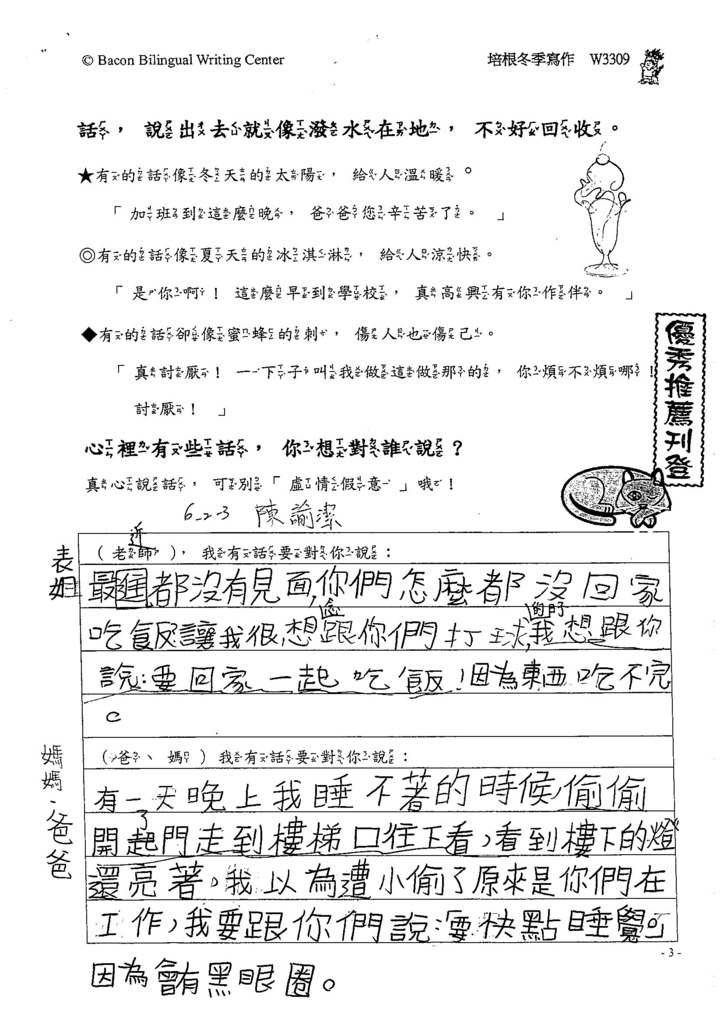 © Bacon Bilingual Writing Center
培根冬季寫作 W3309
話，說出去就像潑水在地，不好回收。
★有的話像冬天的太陽，給人溫暖。
「加班到這麼晚，爸爸您辛苦了。」
◎有的話像夏天的冰淇淋，給人涼快。
「是你啊！這麼早到學校，真高興有你作伴。」
◆有的話卻像蜜蜂的刺，傷人也傷己。
「真討厭！一下子叫我做這做那的，你煩不煩哪！
討厭！」
優秀推薦刊登
心裡有些話，你想對誰說？
真心說話，可別「虛情假意」哦！
6-2-3 陳諭潔
表姐
（老師），我有話要對你說：
最近都沒有見面，你們怎麼都沒回家
吃飯讓我很想跟你們打球，我想跟你
說：要回家一起吃飯！因為東西吃不完
。
媽媽、爸爸
（爸、媽）我有話要對你說：
有一天晚上我睡不著的時候，偷偷
開了門走到樓梯口往下看，看到樓下的燈
還亮著，我以為遭小偷了原來是你們在
工作，我要跟你們說：要快點睡覺
因為會有黑眼圈。
- 3 -